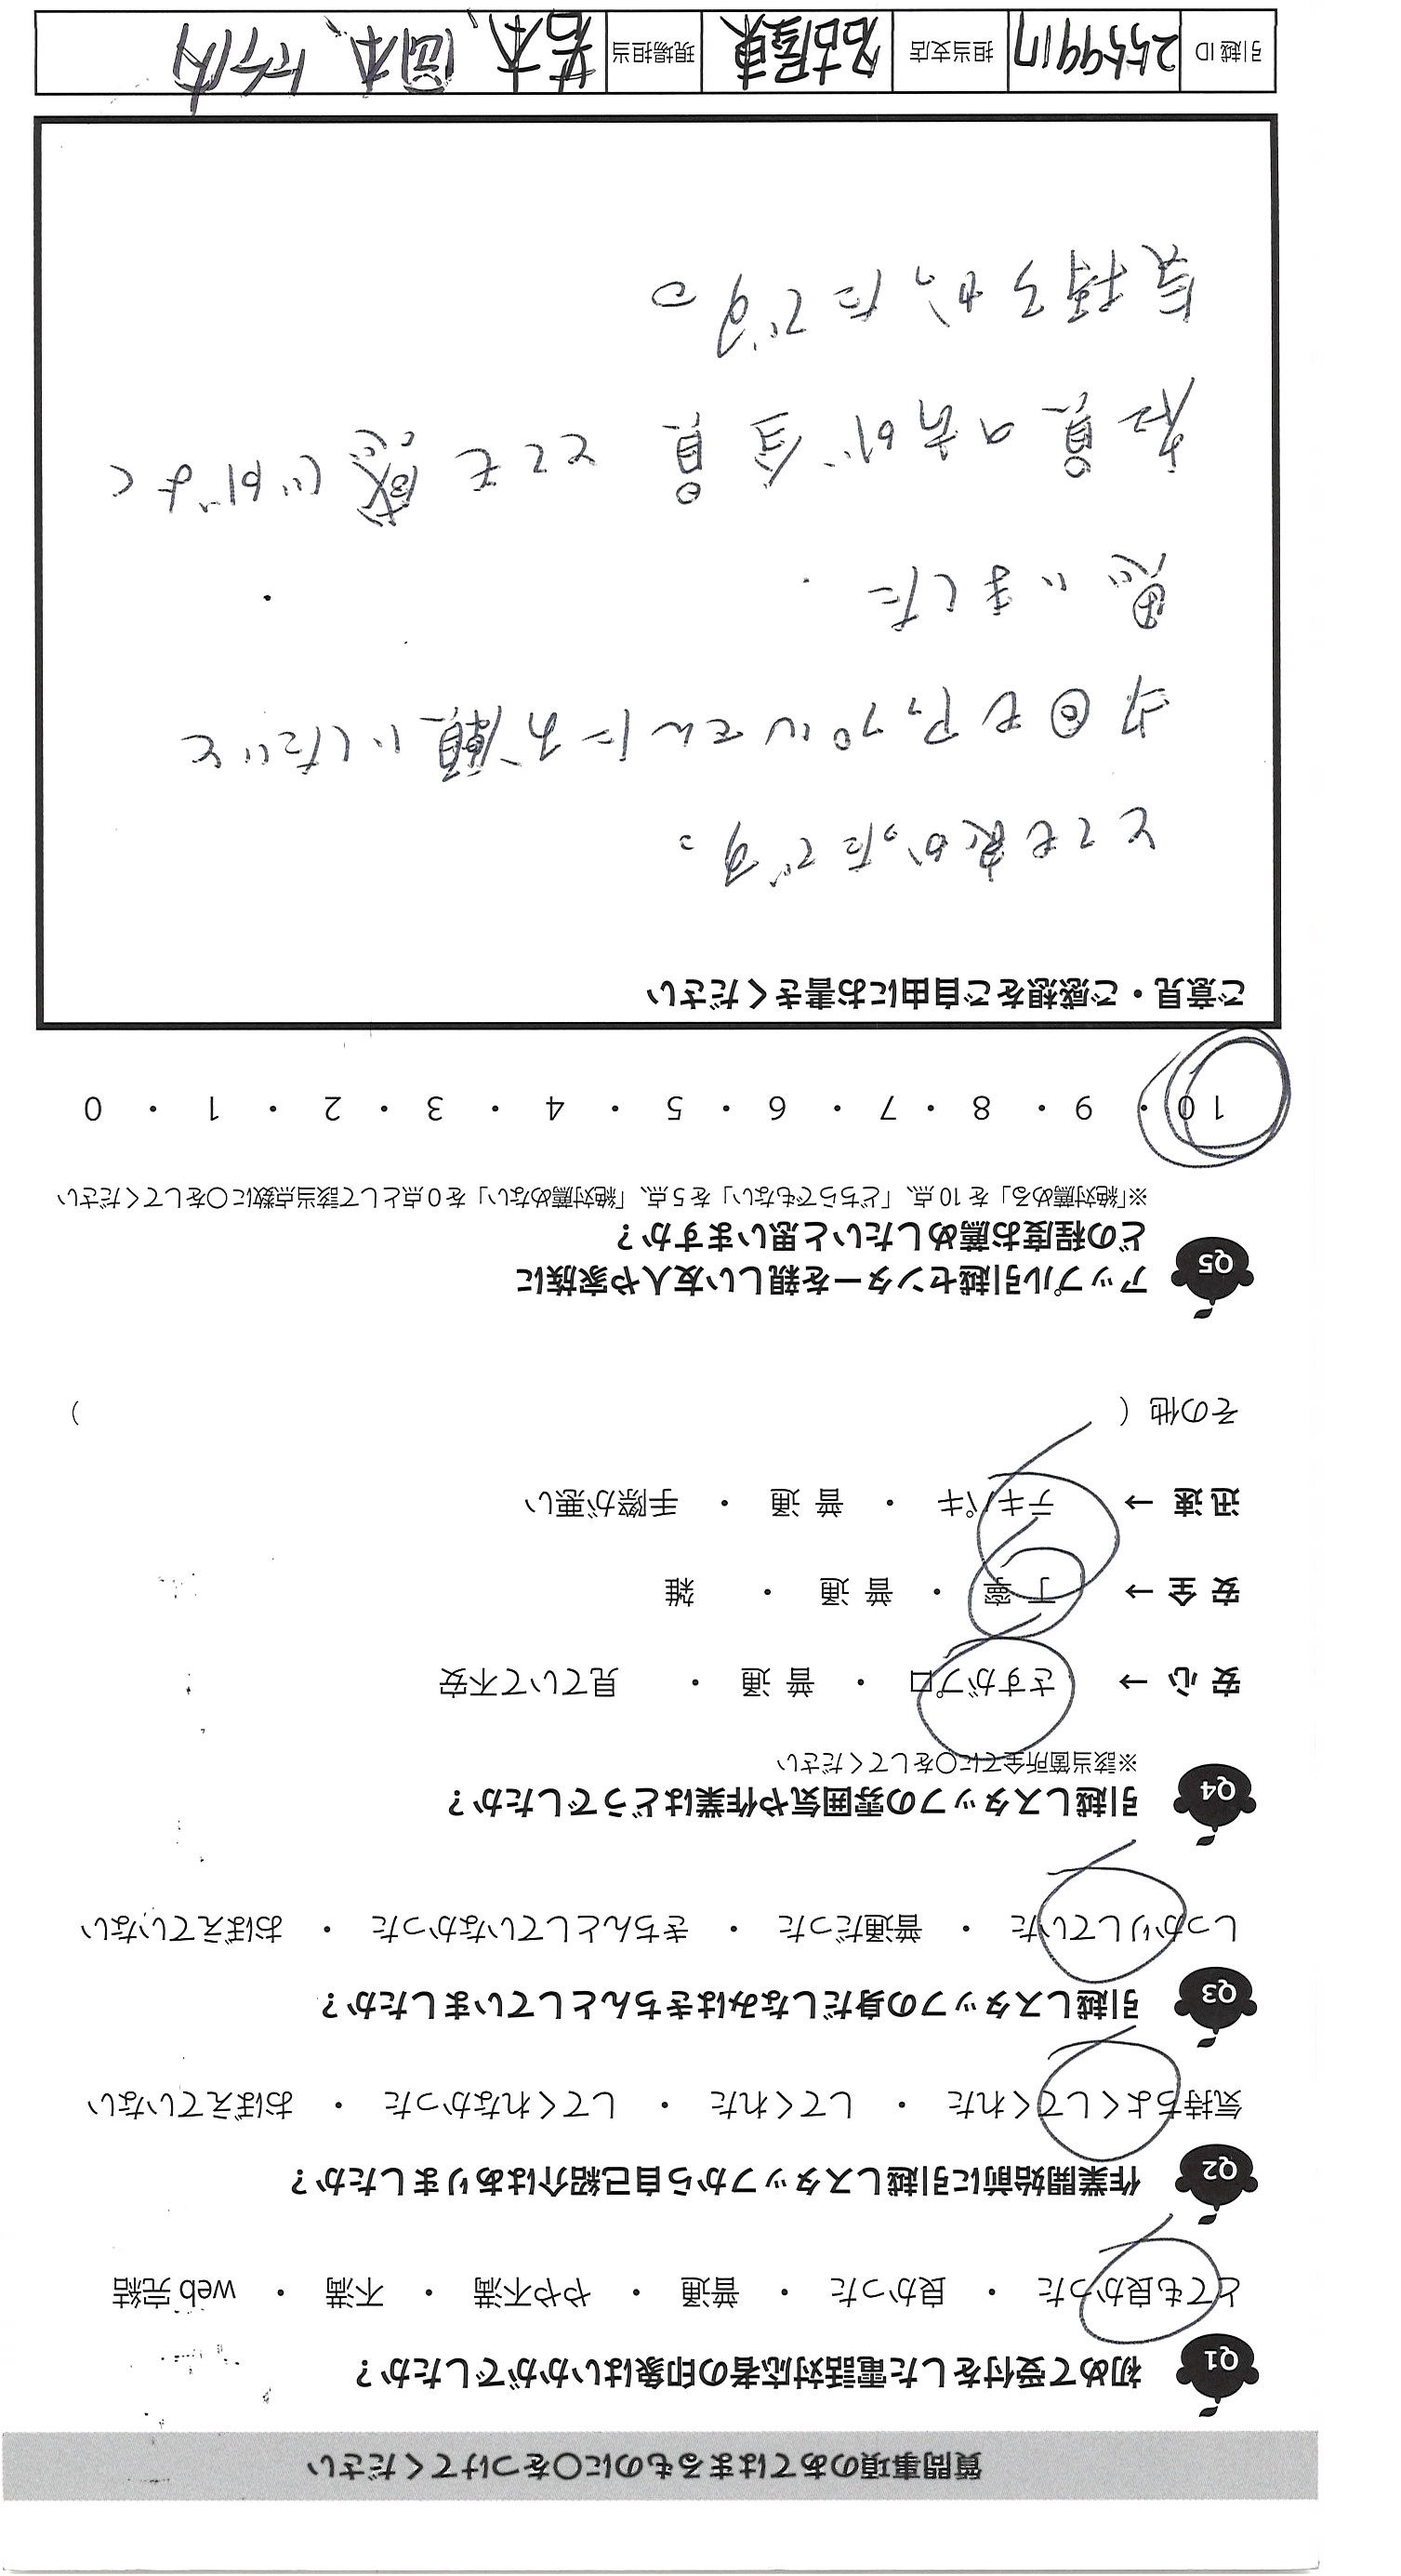 質問事項のあてはまるものに〇をつけてください
Q1 初めて受付をした電話対応者の印象はいかがでしたか？
とても良かった ・ 良かった ・ 普通 ・ やや不満 ・ 不満 ・ web 完結
Q2 作業開始前に引越しスタッフから自己紹介はありましたか？
気持ちよくしてくれた ・ してくれた ・ してくれなかった ・ おぼえていない
Q3 引越しスタッフの身だしなみはきちんとしていましたか？
しっかりしていた ・ 普通だった ・ きちんとしていなかった ・ おぼえていない
Q4 引越しスタッフの雰囲気や作業はどうでしたか？
※該当箇所全てに〇をしてください
安 心 → さすがプロ ・ 普 通 ・ 見ていて不安
安 全 → 丁 寧 ・ 普 通 ・ 雑
迅 速 → テキパキ ・ 普 通 ・ 手際が悪い
その他（ ）
Q5 アップル引越センターを親しい友人や家族に
どの程度お薦めしたいと思いますか？
※「絶対薦める」を 10 点、「どちらでもない」を 5 点、「絶対薦めない」を 0 点として該当点数に〇をしてください
10 ・ 9 ・ 8 ・ 7 ・ 6 ・ 5 ・ 4 ・ 3 ・ 2 ・ 1 ・ 0
ご意見・ご感想をご自由にお書きください
とても良かったです。
今回もアップルさんにお願いしたいと
思いました
社員の方が全員とても感じがよく
気持ちよかったです。
引越 ID 2559917 担当支店 名古屋東 現場担当 若本、岡本、竹内